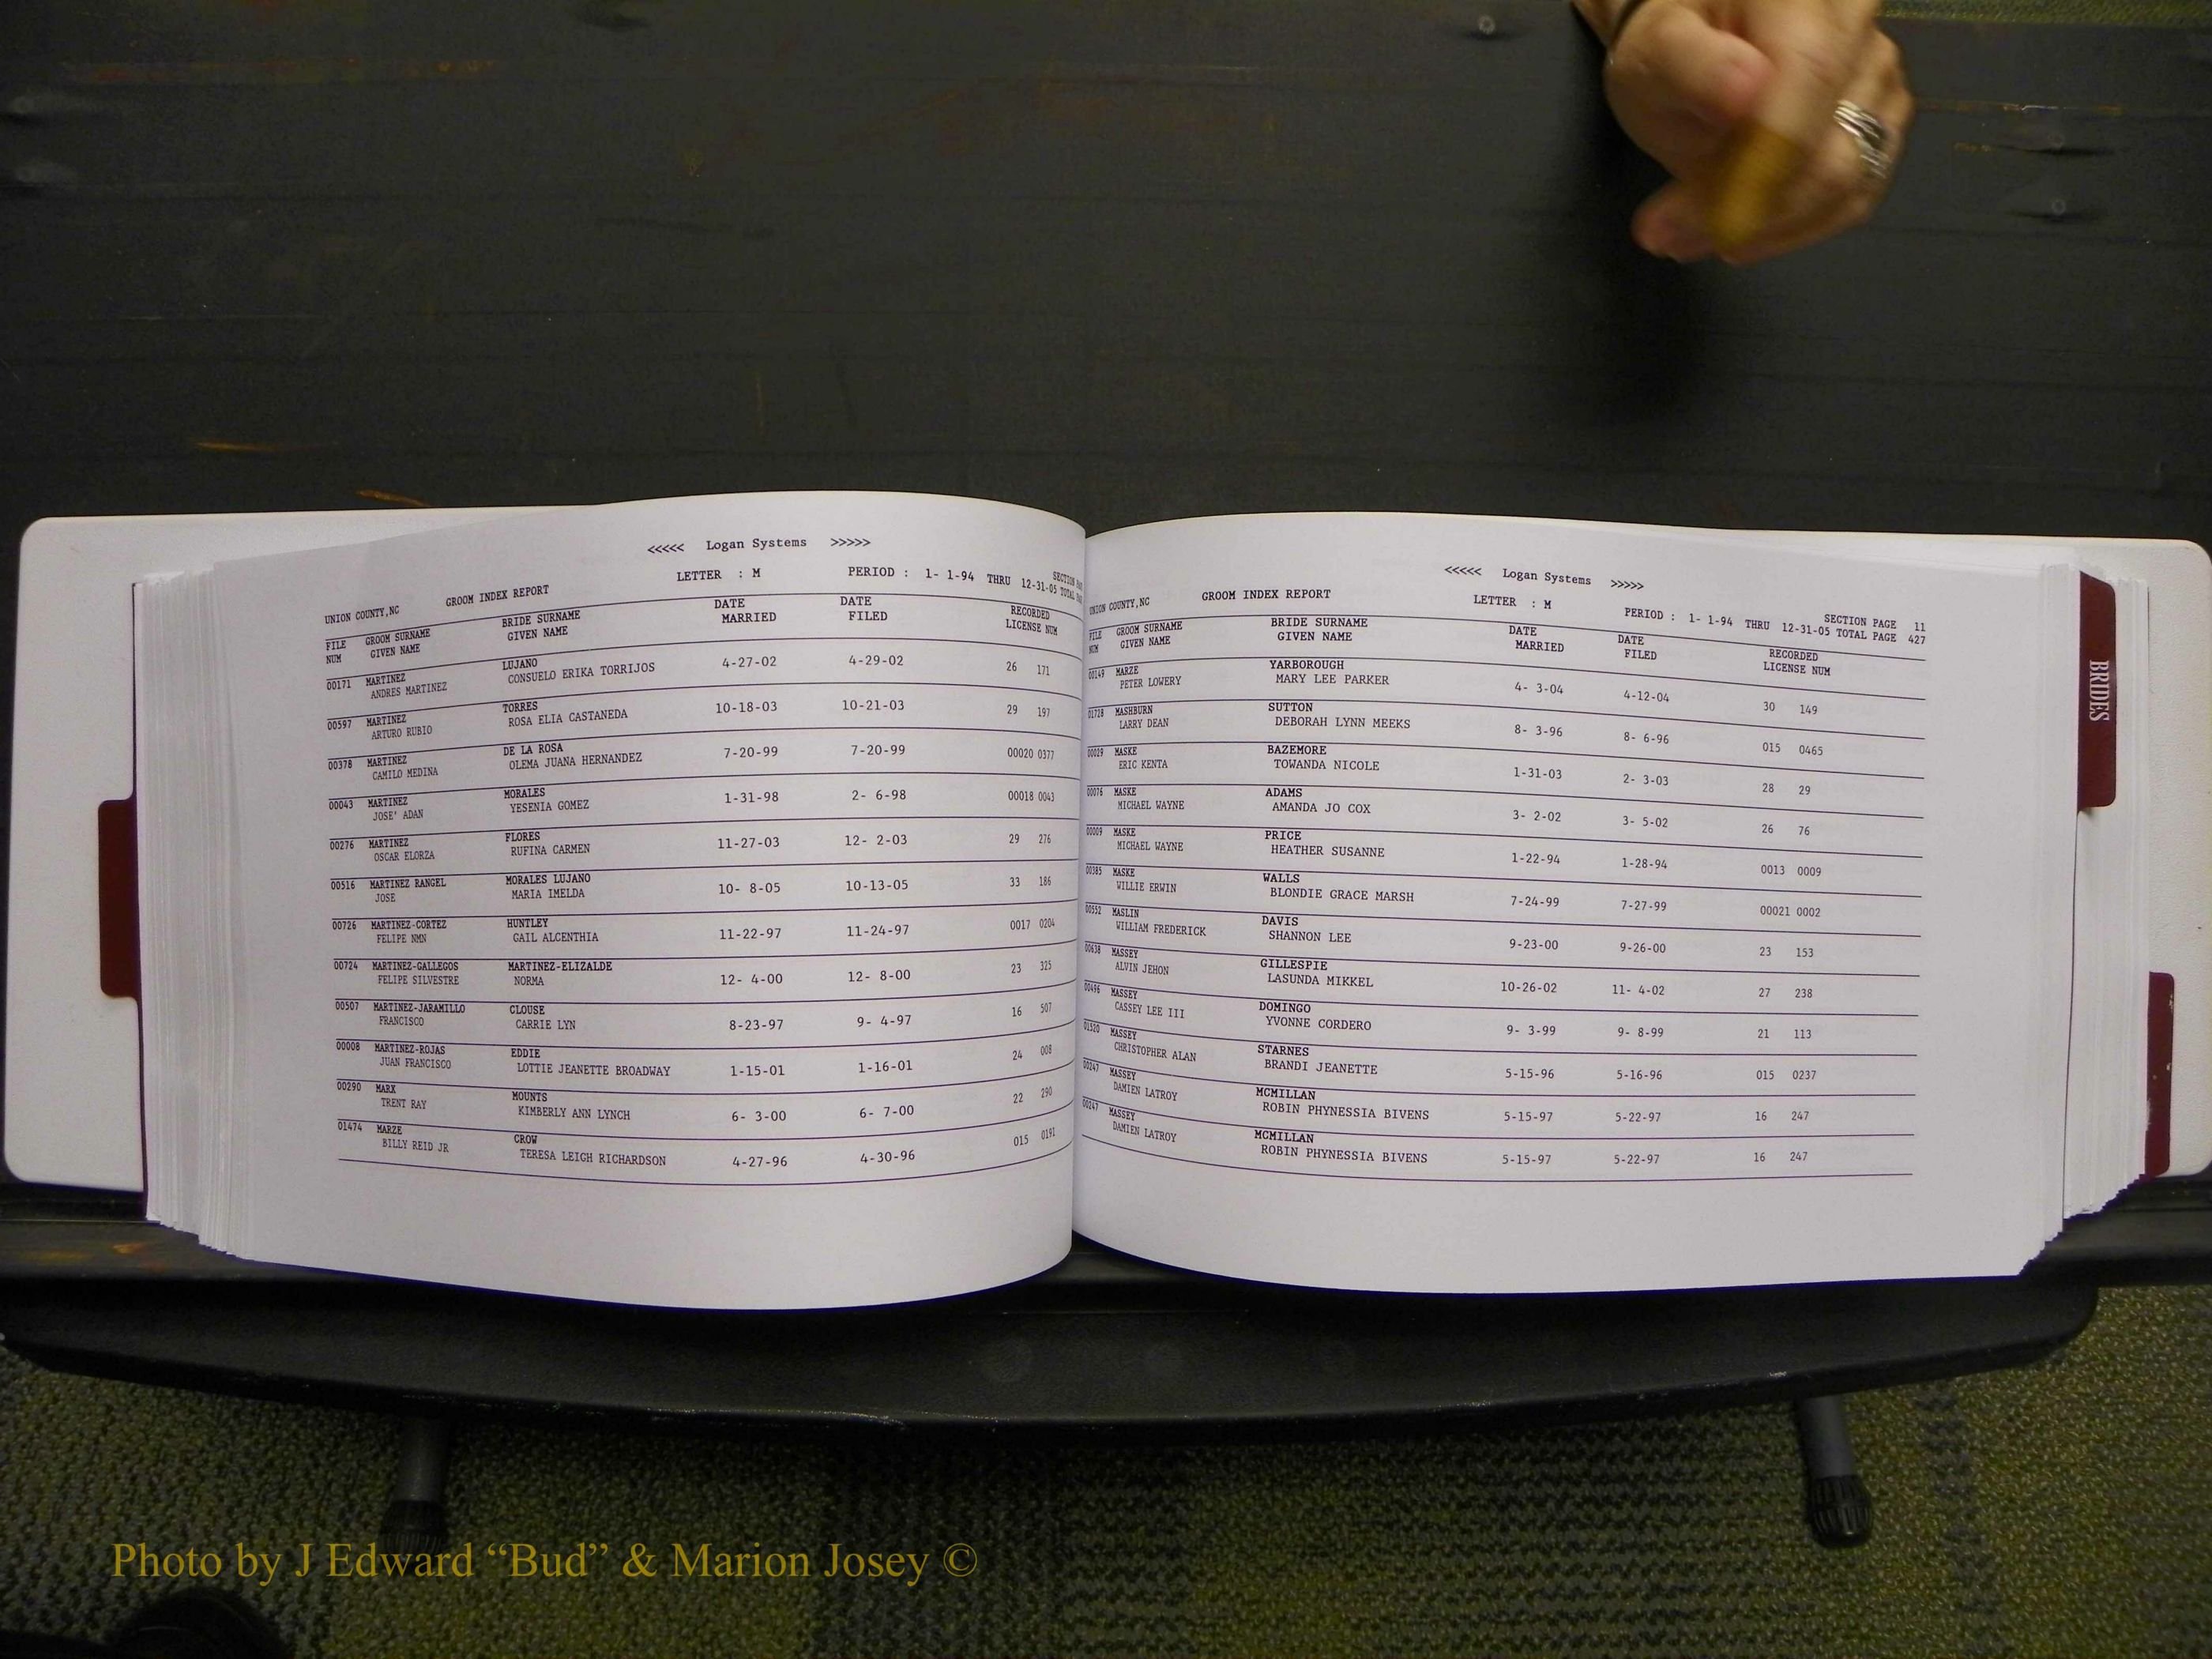 <<<<< Logan Systems >>>>>
LETTER : M PERIOD : 1- 1-94 THRU 12-31-05 TOTAL
UNION COUNTY,NC GROOM INDEX REPORT SECTION
FILE GROOM SURNAME BRIDE SURNAME DATE DATE RECORDED
NUM GIVEN NAME GIVEN NAME MARRIED FILED LICENSE NUM
00171 MARTINEZ LUJANO 4-27-02 4-29-02 26 171
ANDRES MARTINEZ CONSUELO ERIKA TORRIJOS
00597 MARTINEZ TORRES 10-18-03 10-21-03 29 197
ARTURO RUBIO ROSA ELIA CASTANEDA
00378 MARTINEZ DE LA ROSA 7-20-99 7-20-99 00020 0377
CAMILO MEDINA OLEMA JUANA HERNANDEZ
00043 MARTINEZ MORALES 1-31-98 2- 6-98 00018 0043
JOSE' ADAN YESENIA GOMEZ
00276 MARTINEZ FLORES 11-27-03 12- 2-03 29 276
OSCAR ELORZA RUFINA CARMEN
00516 MARTINEZ RANGEL MORALES LUJANO 10- 8-05 10-13-05 33 186
JOSE MARIA IMELDA
00726 MARTINEZ-CORTEZ HUNTLEY 11-22-97 11-24-97 0017 0204
FELIPE NMN GAIL ALCENTHIA
00724 MARTINEZ-GALLEGOS MARTINEZ-ELIZALDE 12- 4-00 12- 8-00 23 325
FELIPE SILVESTRE NORMA
00507 MARTINEZ-JARAMILLO CLOUSE 8-23-97 9- 4-97 16 507
FRANCISCO CARRIE LYN
00008 MARTINEZ-ROJAS EDDIE 1-15-01 1-16-01 24 008
JUAN FRANCISCO LOTTIE JEANETTE BROADWAY
00290 MARX MOUNTS 6- 3-00 6- 7-00 22 290
TRENT RAY KIMBERLY ANN LYNCH
01474 MARZE CROW 4-27-96 4-30-96 015 0191
BILLY REID JR TERESA LEIGH RICHARDSON
<<<<< Logan Systems >>>>>
UNION COUNTY,NC GROOM INDEX REPORT LETTER : M SECTION PAGE 11
PERIOD : 1- 1-94 THRU 12-31-05 TOTAL PAGE 427
FILE GROOM SURNAME BRIDE SURNAME DATE DATE RECORDED
NUM GIVEN NAME GIVEN NAME MARRIED FILED LICENSE NUM
00149 MARZE YARBOROUGH 4- 3-04 4-12-04 30 149
PETER LOWERY MARY LEE PARKER
01728 MASHBURN SUTTON 8- 3-96 8- 6-96 015 0465
LARRY DEAN DEBORAH LYNN MEEKS
00029 MASKE BAZEMORE 1-31-03 2- 3-03 28 29
ERIC KENTA TOWANDA NICOLE
00076 MASKE ADAMS 3- 2-02 3- 5-02 26 76
MICHAEL WAYNE AMANDA JO COX
00009 MASKE PRICE 1-22-94 1-28-94 0013 0009
MICHAEL WAYNE HEATHER SUSANNE
00385 MASKE WALLS 7-24-99 7-27-99 00021 0002
WILLIE ERWIN BLONDIE GRACE MARSH
00552 MASLIN DAVIS 9-23-00 9-26-00 23 153
WILLIAM FREDERICK SHANNON LEE
00638 MASSEY GILLESPIE 10-26-02 11- 4-02 27 238
ALVIN JEHON LASUNDA MIKKEL
00496 MASSEY DOMINGO 9- 3-99 9- 8-99 21 113
CASSEY LEE III YVONNE CORDERO
01520 MASSEY STARNES 5-15-96 5-16-96 015 0237
CHRISTOPHER ALAN BRANDI JEANETTE
00247 MASSEY MCMILLAN 5-15-97 5-22-97 16 247
DAMIEN LATROY ROBIN PHYNESSIA BIVENS
00247 MASSEY MCMILLAN 5-15-97 5-22-97 16 247
DAMIEN LATROY ROBIN PHYNESSIA BIVENS
BRIDES
Photo by J Edward “Bud” & Marion Josey ©